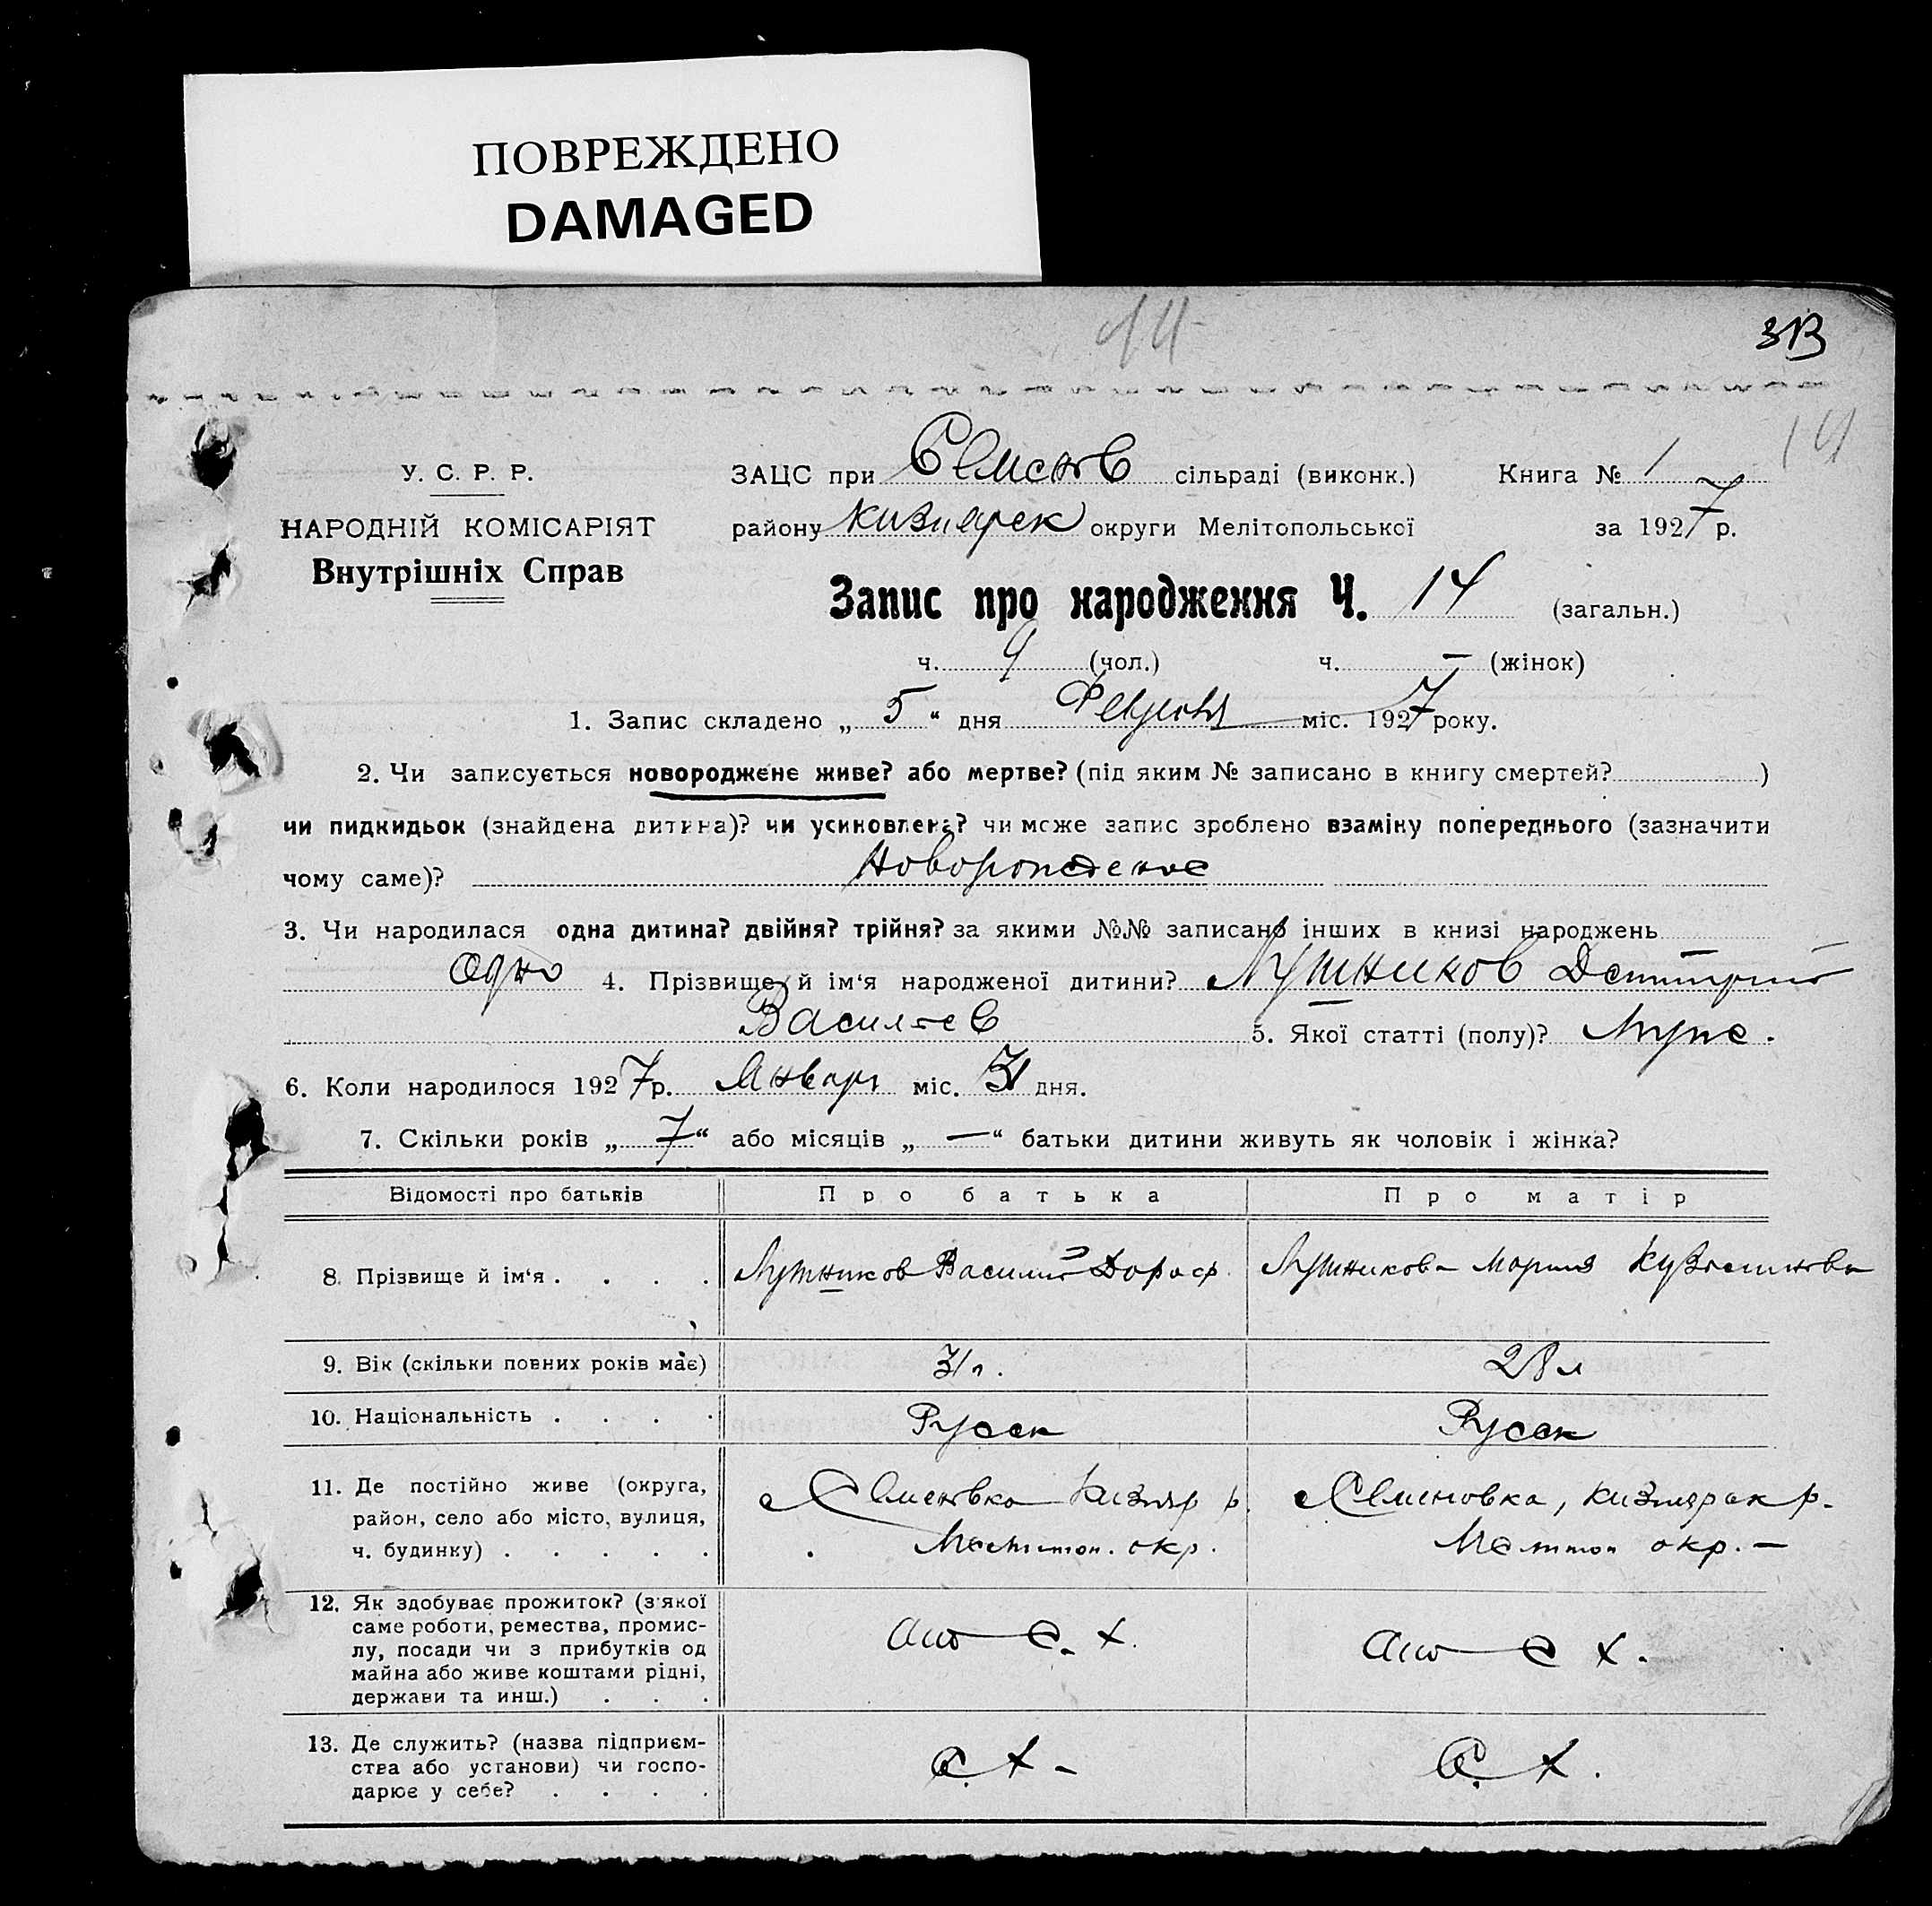 ПОВРЕЖДЕНО
DAMAGED
14
14
У. С. Р. Р.
НАРОДНІЙ КОМІСАРІЯТ
Внутрішніх Справ
ЗАЦС при Семенов сільраді (виконк.) Книга № 1
району Кизиярск округи Мелітопольської за 1927 р.
Запис про народження Ч. 14 (загальн.)
ч. 9 (чол.) ч. — (жінок)
1. Запис складено „ 5 “ дня Февраля міс. 1927 року.
2. Чи записується новороджене живе? або мертве? (під яким № записано в книгу смертей? )
чи пидкидьок (знайдена дитина)? чи усиновлена? чи може запис зроблено взаміну попереднього (зазначити
чому саме)? Новорожденое
3. Чи народилася одна дитина? двійня? трійня? за якими №№ записано інших в книзі народжень
Одно 4. Прізвище й ім'я народженої дитини? Лутников Дмитрий
Васильев 5. Якої статті (полу)? Муж.
6. Коли народилося 1927 р. Января міс. 31 дня.
7. Скільки років „ 7 “ або місяців „ — “ батьки дитини живуть як чоловік і жінка?
Відомості про батьків Про батька Про матір
8. Прізвище й ім'я . . . . Лутников Василий Дороф. Лутникова Мария Кузьминовна
9. Вік (скільки повних років має) 31 л. 28 л
10. Національність . . . . Русск Русск
11. Де постійно живе (округа, район, село або місто, вулиця, ч. будинку) . . . . . Семеновка Кизияр р. Мелитоп. окр. Семеновка, Кизиярск р. Мелитоп окр. —
12. Як здобуває прожиток? (з'якої саме роботи, ремества, промислу, посади чи з прибутків од майна або живе коштами рідні, держави та инш.) . . . с. х. с х.
13. Де служить? (назва підприємства або установи) чи господарює у себе? . . . . с. х — с. х.